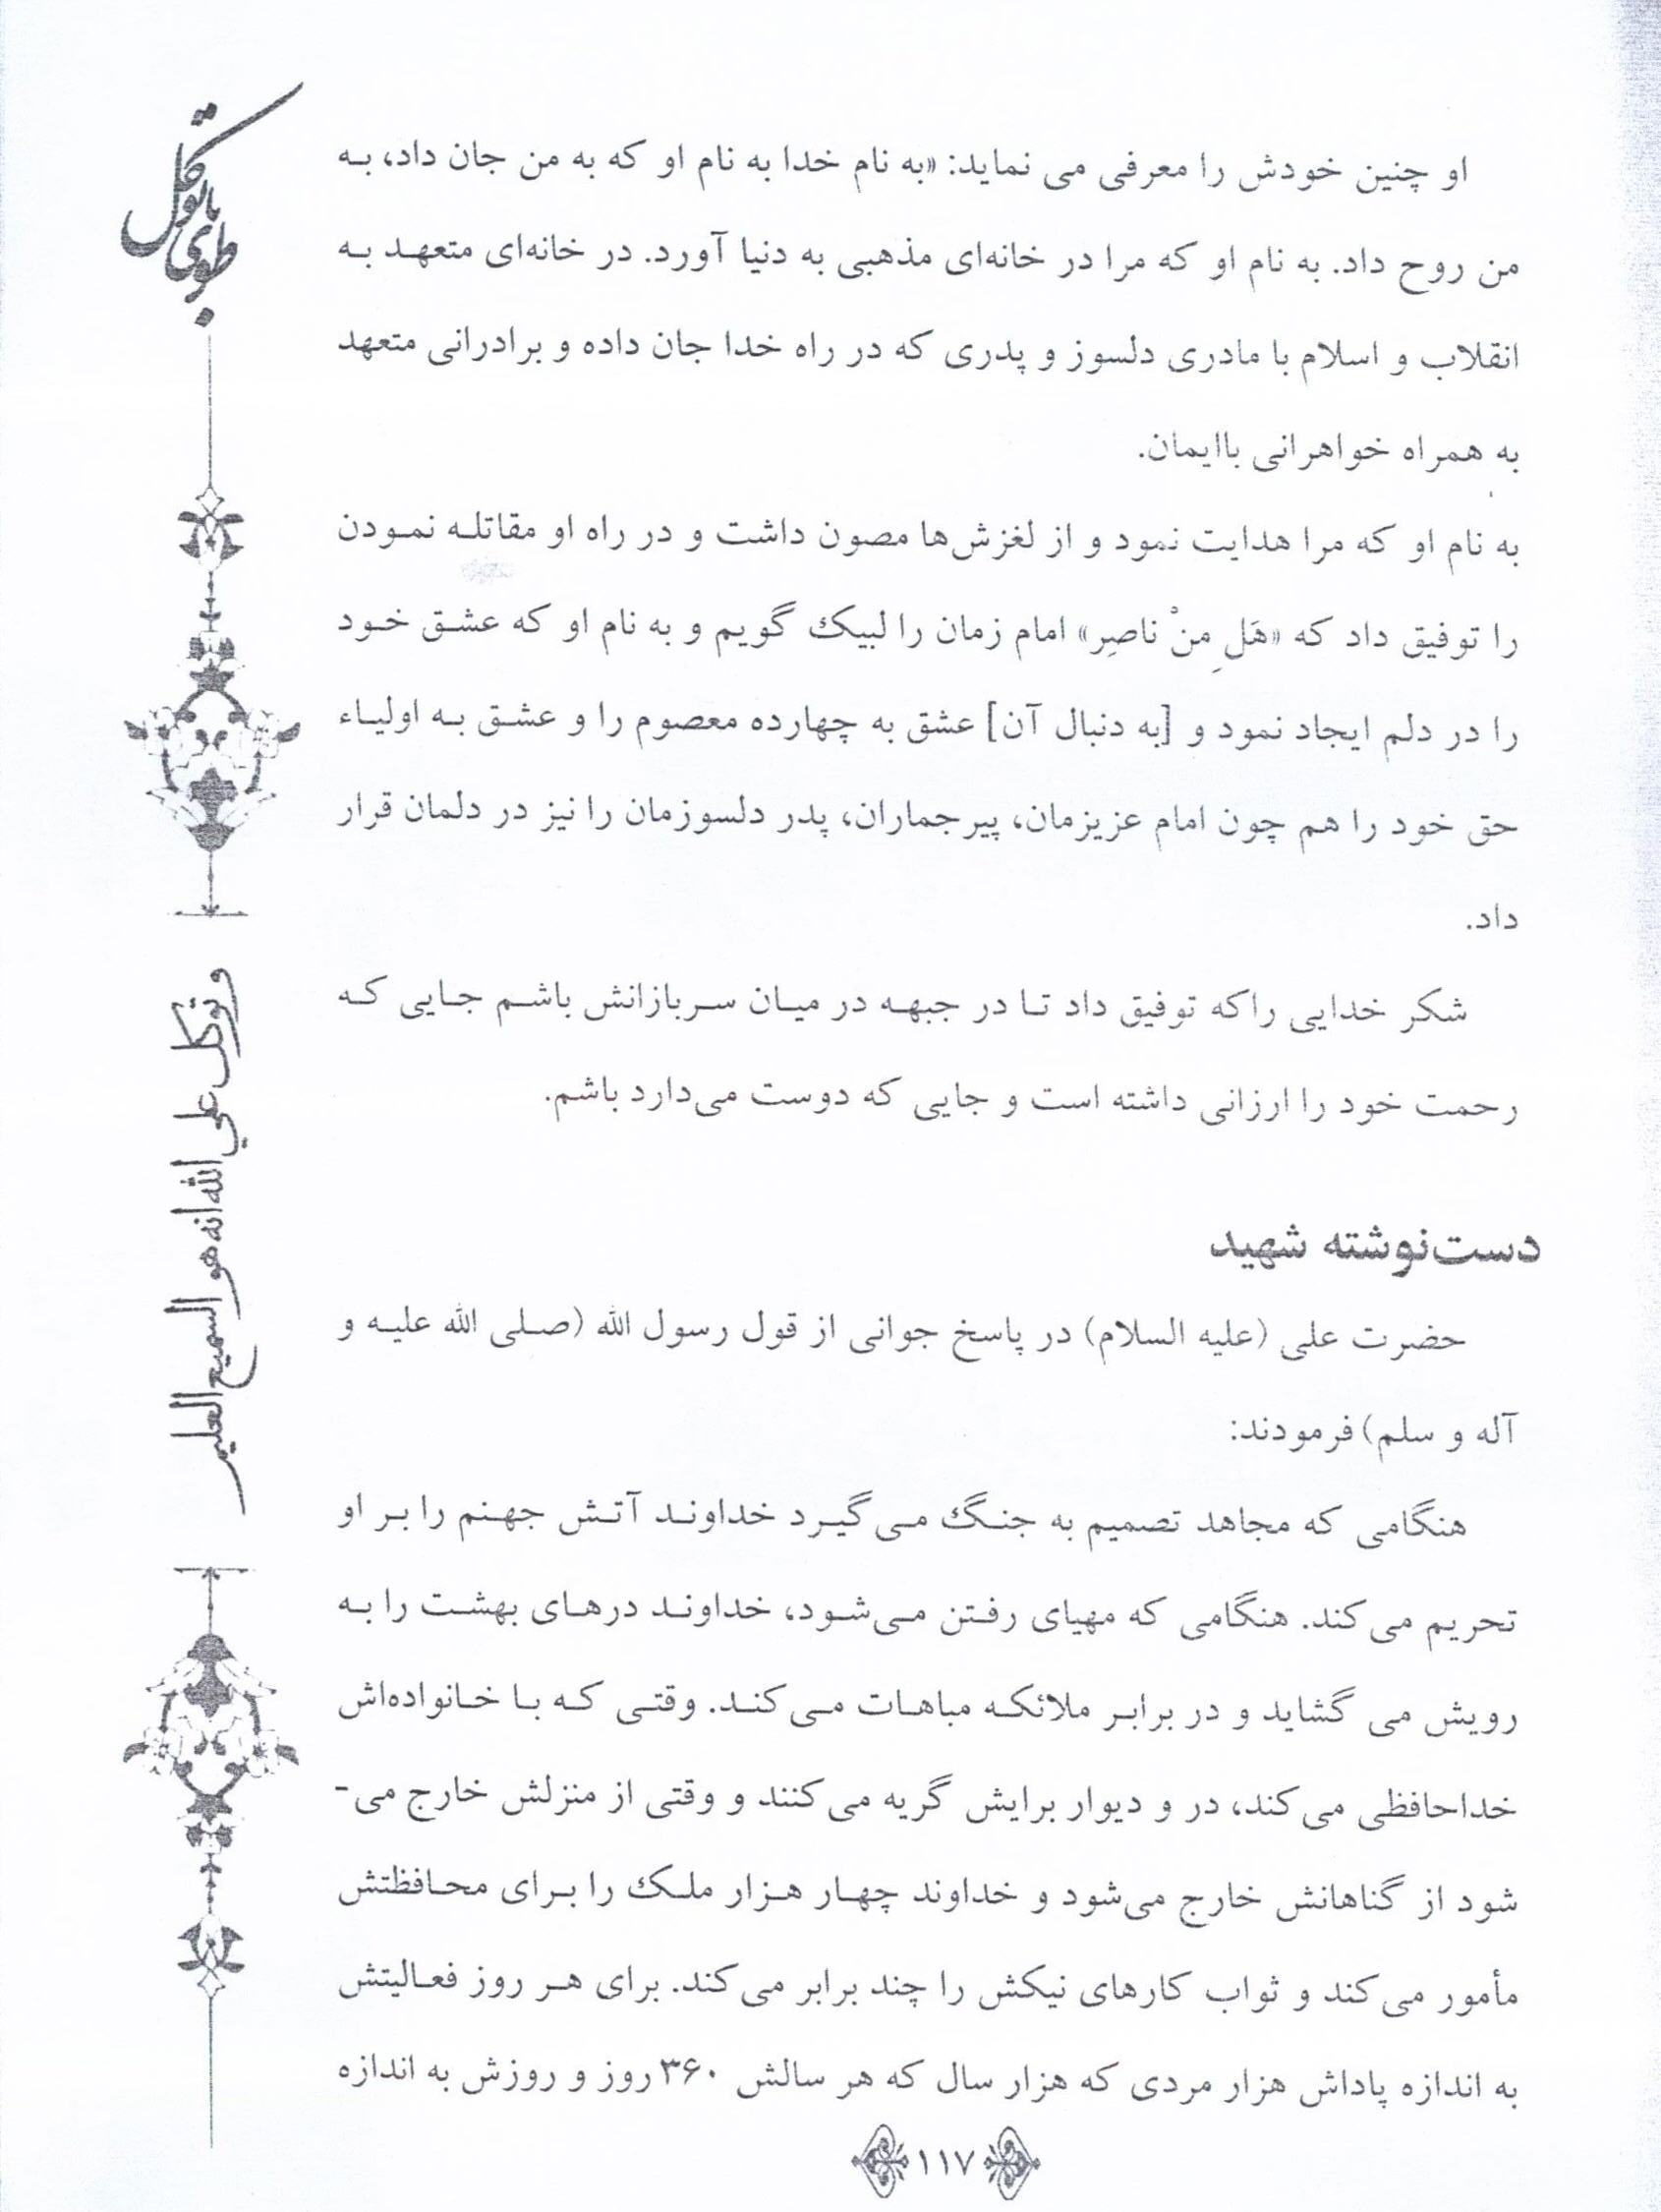 او چنین خودش را معرفی می نماید: «به نام خدا به نام او که به من جان داد، به
من روح داد. به نام او که مرا در خانه‌ای مذهبی به دنیا آورد. در خانه‌ای متعهد به
انقلاب و اسلام با مادری دلسوز و پدری که در راه خدا جان داده و برادرانی متعهد
به همراه خواهرانی باایمان.
به نام او که مرا هدایت نمود و از لغزش‌ها مصون داشت و در راه او مقاتله نمودن
را توفیق داد که «هَلِ مِنْ ناصِر» امام زمان را لبیک گویم و به نام او که عشق خود
را در دلم ایجاد نمود و [به دنبال آن] عشق به چهارده معصوم را و عشق به اولیاء
حق خود را هم چون امام عزیزمان، پیرجماران، پدر دلسوزمان را نیز در دلمان قرار
داد.
شکر خدایی راکه توفیق داد تا در جبهه در میان سربازانش باشم جایی که
رحمت خود را ارزانی داشته است و جایی که دوست می‌دارد باشم.
دست‌نوشته شهید
حضرت علی (علیه السلام) در پاسخ جوانی از قول رسول الله (صلی الله علیه و
آله و سلم) فرمودند:
هنگامی که مجاهد تصمیم به جنگ می‌گیرد خداوند آتش جهنم را بر او
تحریم می‌کند. هنگامی که مهیای رفتن می‌شود، خداوند درهای بهشت را به
رویش می گشاید و در برابر ملائکه مباهات می‌کند. وقتی که با خانواده‌اش
خداحافظی می‌کند، در و دیوار برایش گریه می‌کنند و وقتی از منزلش خارج می-
شود از گناهانش خارج می‌شود و خداوند چهار هزار ملک را برای محافظتش
مأمور می‌کند و ثواب کارهای نیکش را چند برابر می‌کند. برای هر روز فعالیتش
به اندازه پاداش هزار مردی که هزار سال که هر سالش ۳۶۰ روز و روزش به اندازه
۱۱۷
طوبای با توکل
و توکل علی الله انه هو السمیع العلیم